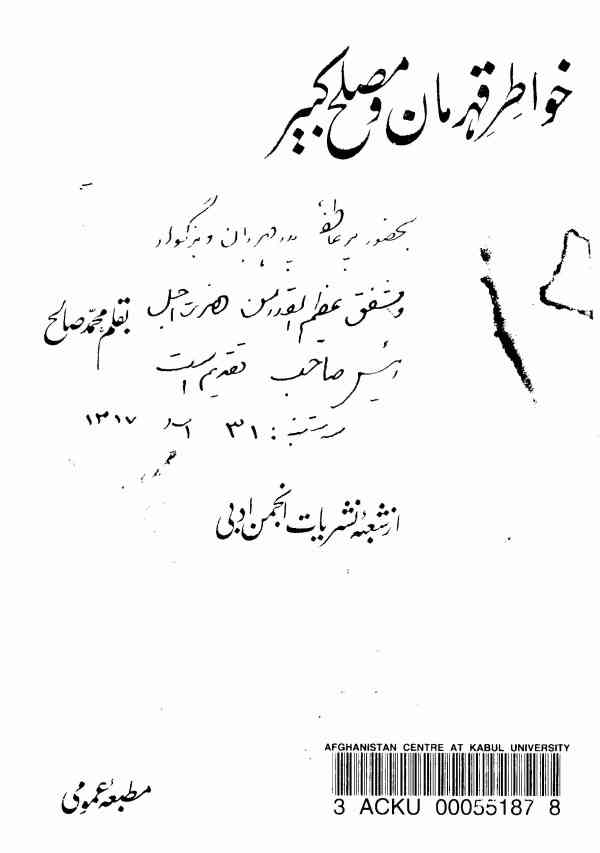 خواطر قهرمان و مصلح کبیر
بحضور پر عاطفه پدر مهربان و بزرگوار
و مشفق عظیم القدر من حضرت اجل
بقلم محمد صالح
رئیس صاحب تقدیم است
۳۱ اسد ۱۳۱۷
از شعبهٔ نشریات انجمن ادبی
AFGHANISTAN CENTRE AT KABUL UNIVERSITY
3 ACKU 00055187 8
مطبعهٔ عمومی